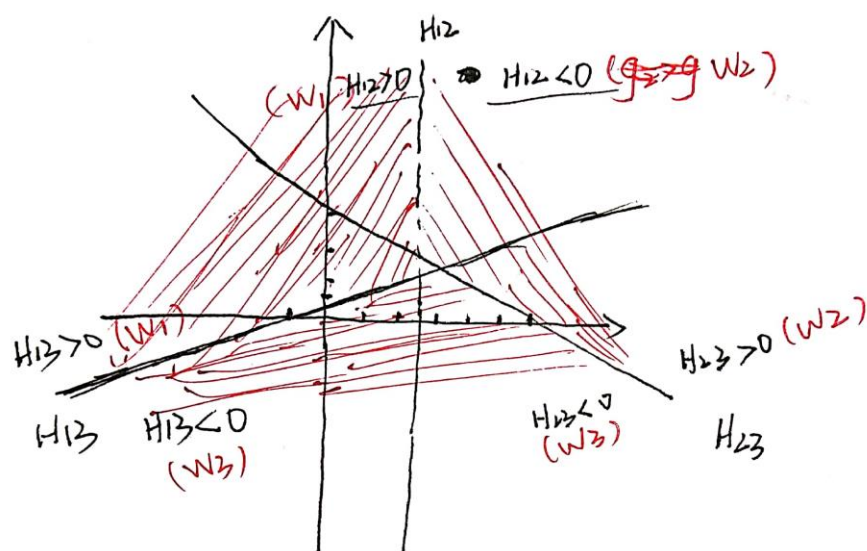 H12
(W1) H12>0
H12<0 (W2)
H13>0 (W1)
H23>0 (W2)
H13
H13<0
(W3)
H23<0
(W3)
H23